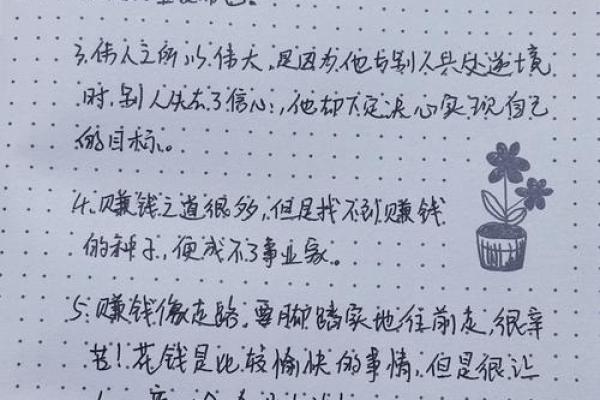 3、伟人之所以伟大,是因为他与别人共处逆境
时,别人失去了信心,他却下定决心实现自己
的目标。
4、赚钱之道很多,但是找不到赚钱
的种子,便成不了事业家。
5、赚钱像走路,要脚踏实地往前走,很辛
苦!花钱是比较愉快的事情,但是很让